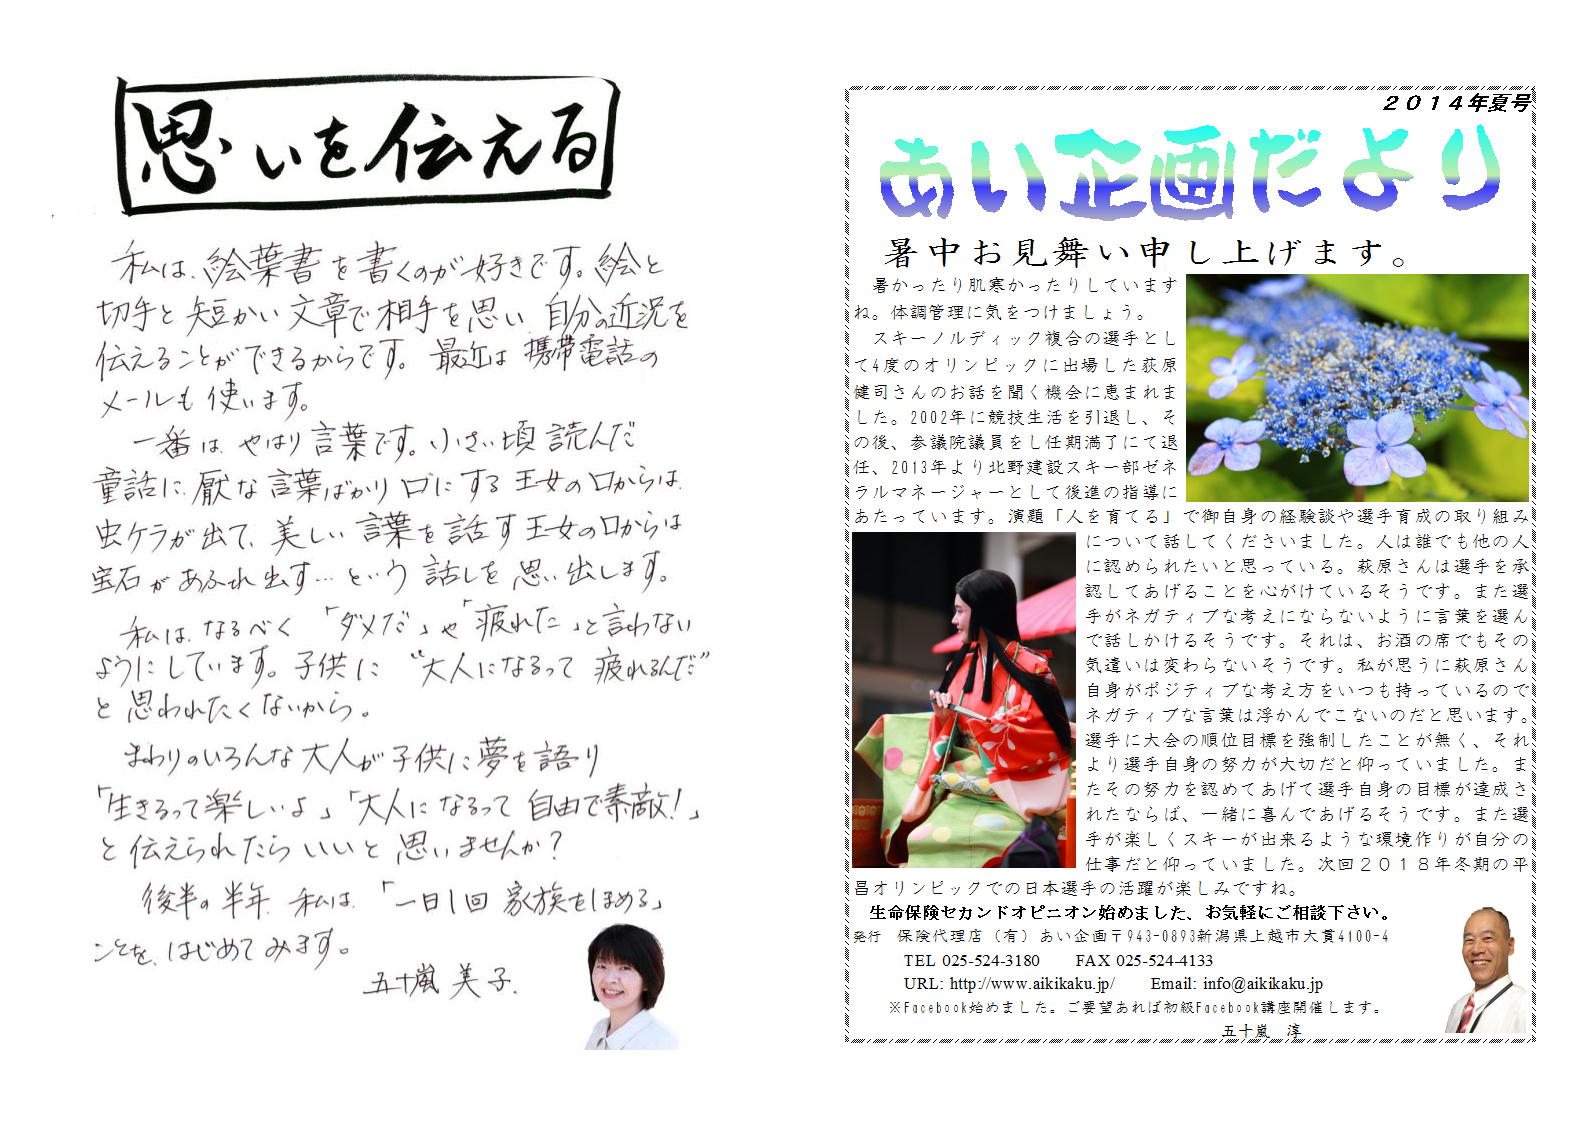 思いを伝える
私は、絵葉書を書くのが好きです。絵と
切手と短かい文章で相手を思い自分の近況を
伝えることができるからです。最近は携帯電話の
メールも使います。
一番は、やはり言葉です。小さい頃読んだ
童話に、厭な言葉ばかり口にする王女の口からは、
虫ケラが出て、美しい言葉を話す王女の口からは
宝石があふれ出す…という話しを思い出します。
私は、なるべく「ダメだ」や「疲れた」と言わない
ようにしています。子供に“大人になるって疲れるんだ”
と思われたくないから。
まわりのいろんな大人が子供に夢を語り
「生きるって楽しいよ」「大人になるって自由で素敵!」
と伝えられたらいいと思いませんか?
後半の半年、私は、「一日1回家族をほめる」
ことを、はじめてみます。
五十嵐美子.
2014年夏号
あい企画だより
暑中お見舞い申し上げます。
暑かったり肌寒かったりしています
ね。体調管理に気をつけましょう。
スキーノルディック複合の選手とし
て4度のオリンピックに出場した荻原
健司さんのお話を聞く機会に恵まれま
した。2002年に競技生活を引退し、そ
の後、参議院議員をし任期満了にて退
任、2013年より北野建設スキー部ゼネ
ラルマネージャーとして後進の指導に
あたっています。演題「人を育てる」で御自身の経験談や選手育成の取り組み
について話してくださいました。人は誰でも他の人
に認められたいと思っている。萩原さんは選手を承
認してあげることを心がけているそうです。また選
手がネガティブな考えにならないように言葉を選ん
で話しかけるそうです。それは、お酒の席でもその
気遣いは変わらないそうです。私が思うに萩原さん
自身がポジティブな考え方をいつも持っているので
ネガティブな言葉は浮かんでこないのだと思います。
選手に大会の順位目標を強制したことが無く、それ
より選手自身の努力が大切だと仰っていました。ま
たその努力を認めてあげて選手自身の目標が達成さ
れたならば、一緒に喜んであげるそうです。また選
手が楽しくスキーが出来るような環境作りが自分の
仕事だと仰っていました。次回2018年冬期の平
昌オリンピックでの日本選手の活躍が楽しみですね。
生命保険セカンドオピニオン始めました、お気軽にご相談下さい。
発行 保険代理店（有）あい企画〒943-0893新潟県上越市大貫4100-4
TEL 025-524-3180 FAX 025-524-4133
URL: http://www.aikikaku.jp/ Email: info@aikikaku.jp
※Facebook始めました。ご要望あれば初級Facebook講座開催します。
五十嵐 淳